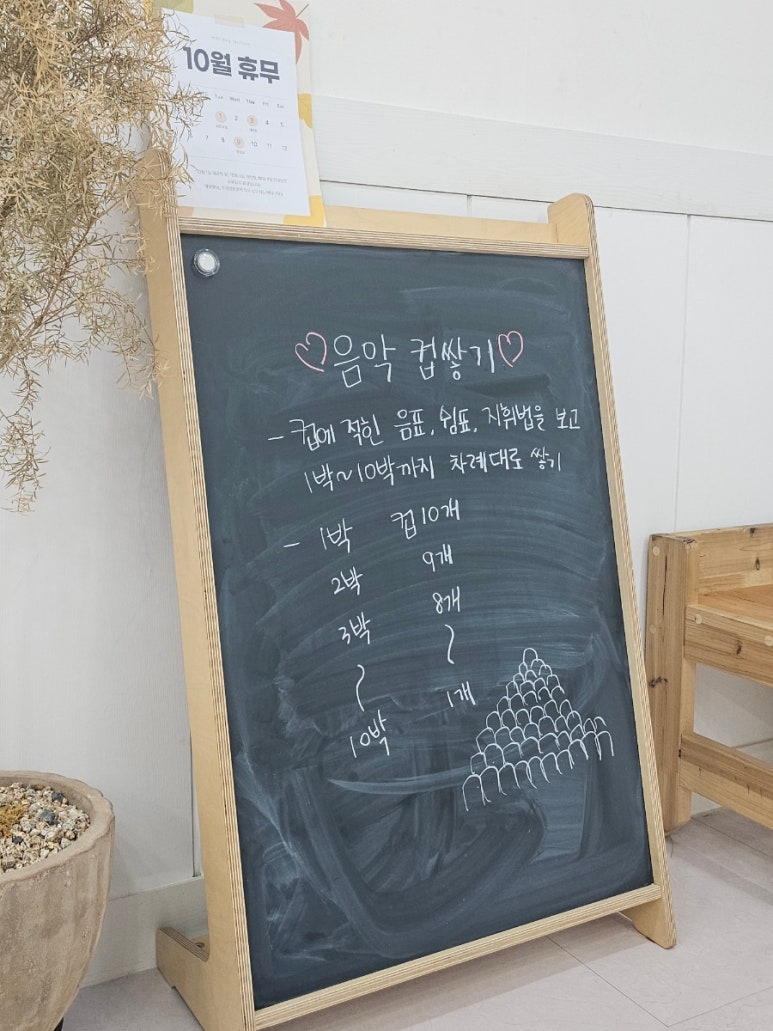 10월 휴무
1 3 4 5
7 8 9 10 11 12
♡음악 컵쌓기♡
- 컵에 적힌 음표, 쉼표, 지휘법을 보고
1박~10박까지 차례대로 쌓기
- 1박 컵10개
2박 9개
3박 8개
~ ~
10박 1개